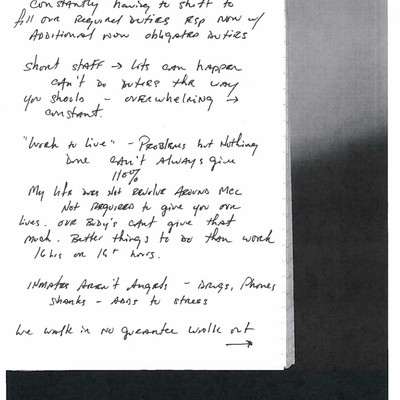 Constantly having to shift to
fill our Required Duties Esp now w/
Additional now obligated Duties
Short staff → Lots can happen
can't do duties the way
you should - overwhelming →
constant.
"Work to Live" - Problems but Nothing
Done can't Always give
110%
My Life does Not Revolve Around MCC
Not Required to give you our
lives. Our Body's can't give that
much. Better things to do than work
16 hrs or 16+ hours.
Inmates Aren't Angels - Drugs, Phones
shanks - ADDS to stress
We walk in no guarantee walk out
→